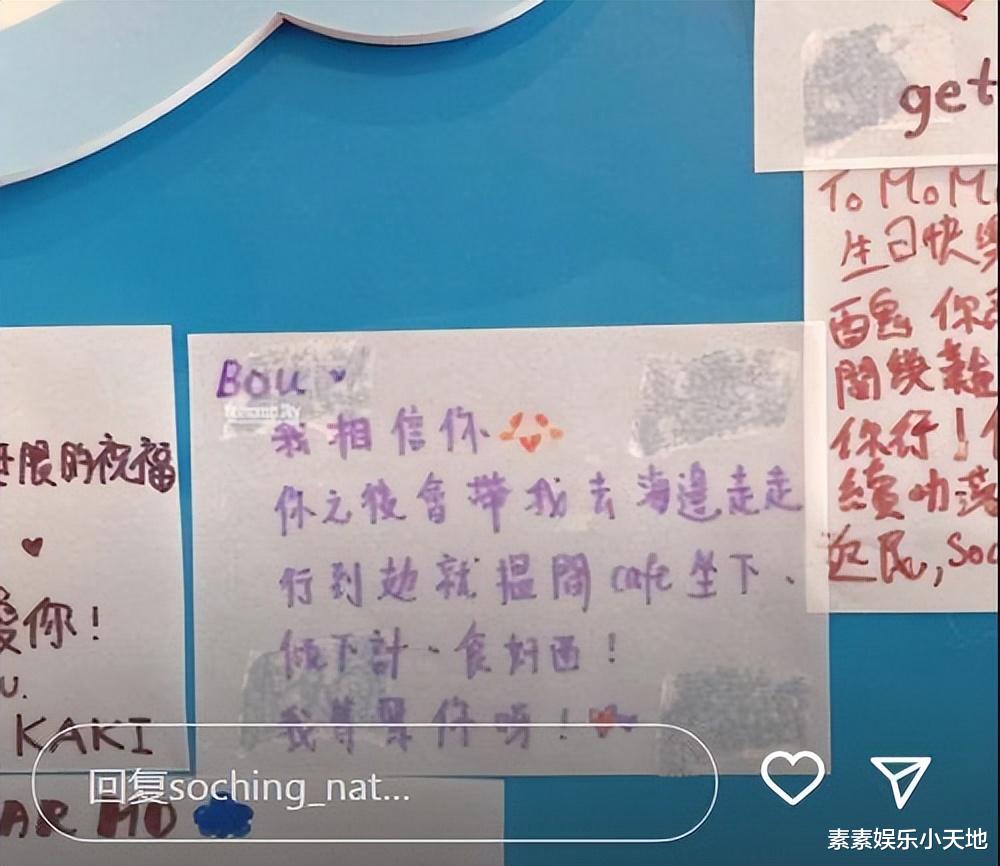 get
To MoM
生日快樂
醜 你
間幾難
你行!
續叻落
返民, Soc
Bou
我相信你
你之後會帶我去海邊走走
行到攰就搵間cafe坐下、
傾下計、食好西!
我等緊你呀!
無限的祝福
愛你!
U.
KAKI
AR MO
回复soching_nat...
素素娱乐小天地